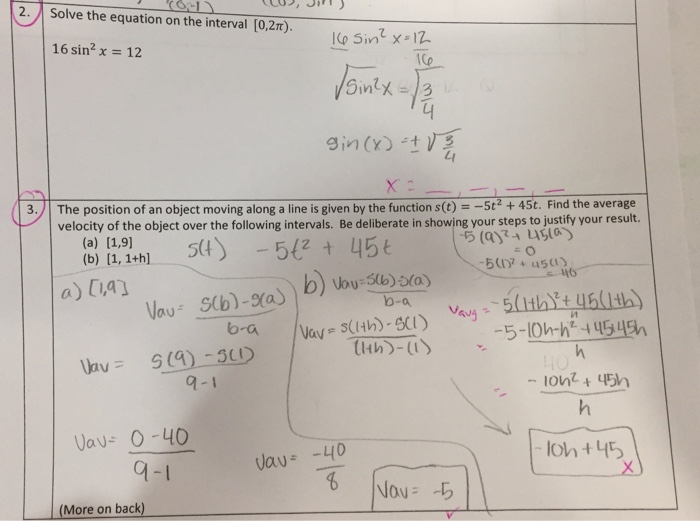 2.
Solve the equation on the interval [0,2π).
16 sin² x = 12
16 sin² x = 12
16
√sin²x = √3/4
sin(x) = ± √3/4
x = _, _, _, _
3.
The position of an object moving along a line is given by the function s(t) = −5t² + 45t. Find the average
velocity of the object over the following intervals. Be deliberate in showing your steps to justify your result.
(a) [1,9]
(b) [1, 1+h]
s(t) -5t² + 45t
-5(9)² + 45(9)
= 0
-5(1)² + 45(1)
= 40
a) [1,9]
Vav = s(b)-s(a)
b-a
Vav = s(9) - s(1)
9-1
Vav = 0-40
9-1
Vav = -40
8
Vav = -5
b) Vav = s(b)-s(a)
b-a
Vav = s(1+h) - s(1)
(1+h)-(1)
Vavg = -5(1+h)² + 45(1+h)
h
= -5-10h-h²+45+45h
h
40
= -10h² + 45h
h
-10h + 45
x
(More on back)